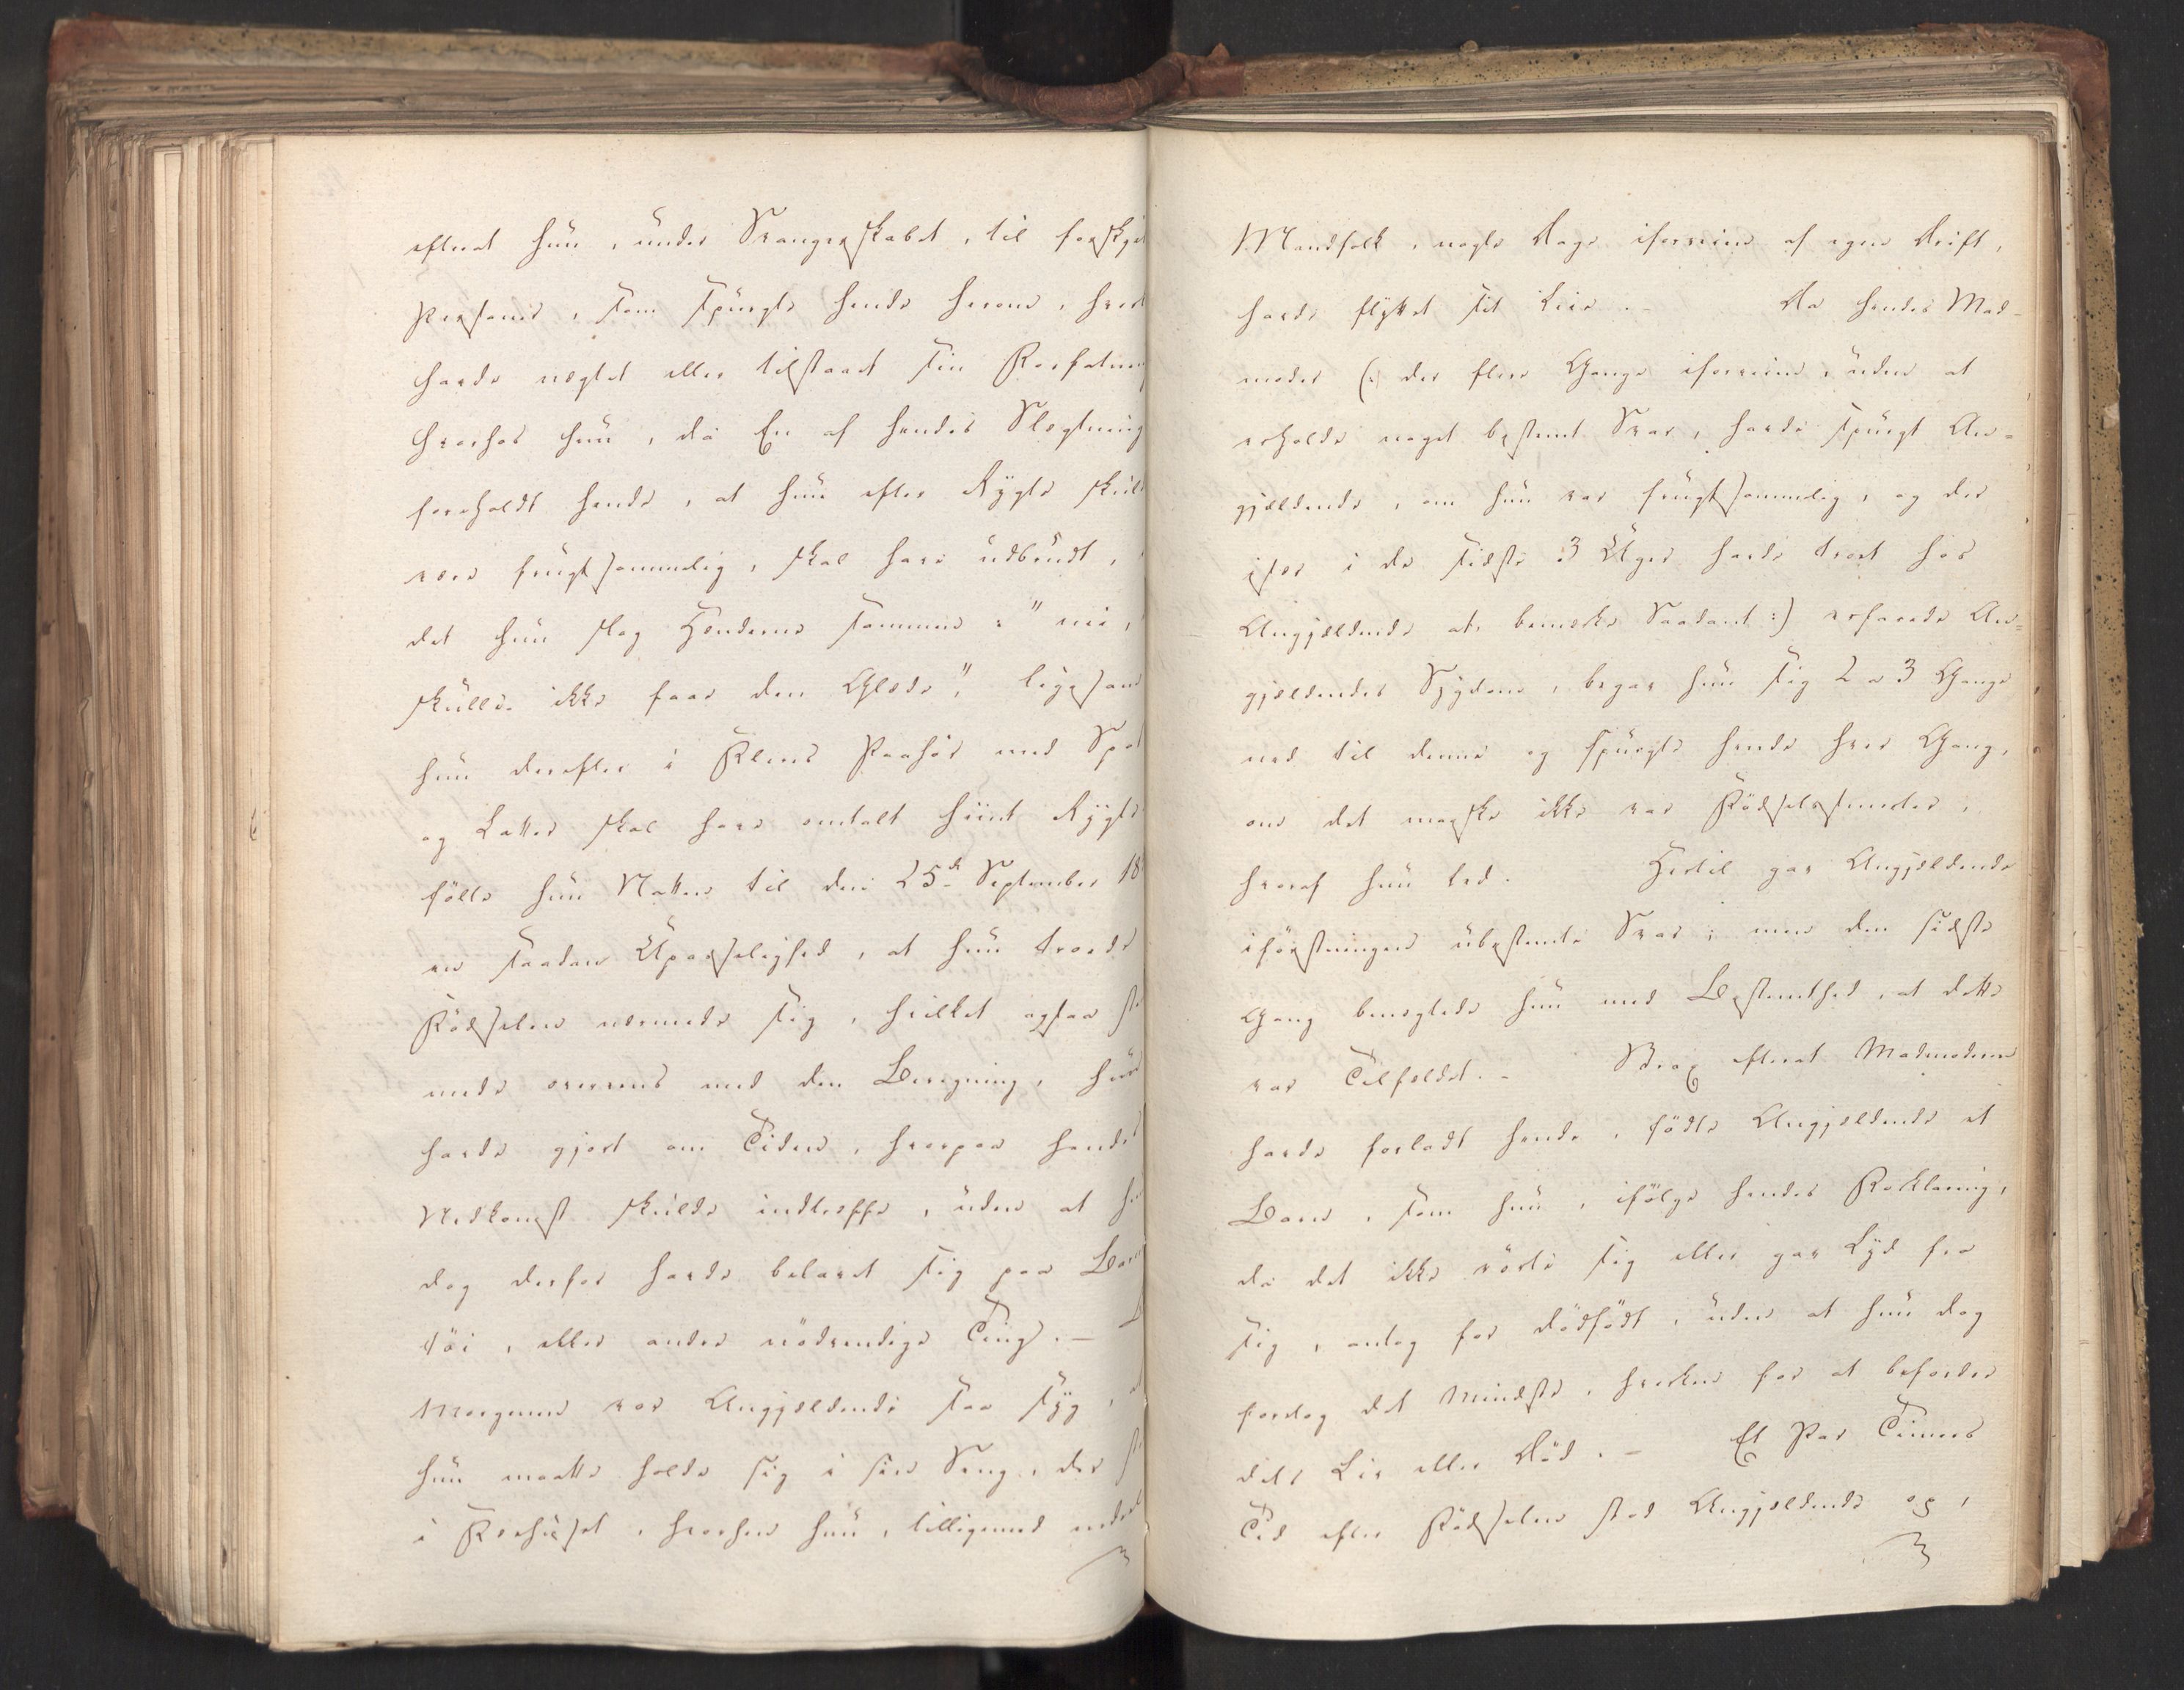 efterat hun, under Svangerskabet, til forskjel
Personer, som spurgte hende herom, hver
havde nægtet eller tilstaaet sin Forfatning
hvorhos hun, da En af hendes Slægtning
foreholdt hende, at hun efter Rygte skul
være frugtsommelig, skal have udbrudt,
det hun slog Hænderne sammen: "nei,
skulle ikke faae den Glæde", ligesom
hun derefter i Fleres Paahør med Spot
og Latter skal have omtalt hiint Rygte
følte hun Natten til den 25de September 18
en saadan Upasselighed, at hun troede
Fødselen nærmede sig, hvilket ogsaa ste
mede overeens med den Beregning, hun
havde gjort om Tiden, hvorpaa hendes
Nedkomst skulde indtræffe, uden at hun
dog derfor havde belavet sig paa Børne
tøi, eller andre nødvendige Ting. —
Morgenen var Angjældende saa syg, at
hun maatte holde sig i sin Seng, der st
i Forhuset, hvorhen hun, tilligemed
Mandfolk, nogle Dage iforveien af egen Drift,
havde flyttet sit Leie. - Da hendes Mad-
moder (: der flere Gange iforveien, uden at
erholde noget bestemt Svar, havde spurgt An=
gjældende, om hun var frugtsommelig, og der
især i de sidste 3 Uger havde troet hos
Angjældende at bemærke Saadant :) erfarede An=
gjældendes Sygdom, begav hun sig 2 a 3 Gange
ned til denne og spurgte hende hver Gang,
om det maaske ikke var Fødselssmerter,
hvoraf hun led. Hertil gav Angjældende
iførstningen ubestemte Svar; men den sidste
Gang benægtede hun med Bestemthed, at dette
var Tilfældet. - Strax efterat Madmoderen
havde forladt hende, fødte Angjældende et
Barn, som hun, ifølge hendes Forklaring,
da det ikke rørte sig eller gav Lyd fra
sig, antog for dødfødt, uden at hun dog
foretog det Mindste, hverken for at befordre
dets Liv eller Død. - Et Par Timers
Tid efter Fødselen stod Angjældende op,